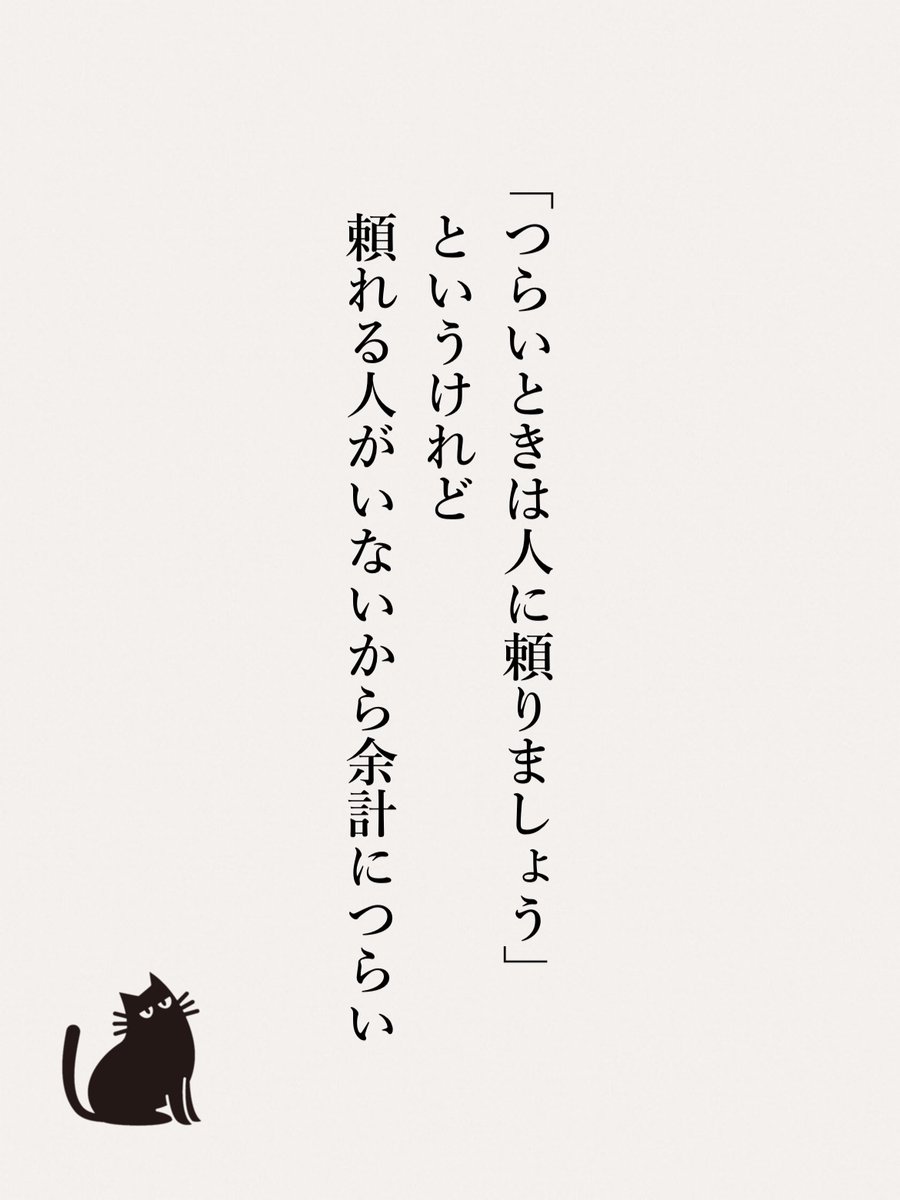 「つらいときは人に頼りましょう」
というけれど
頼れる人がいないから余計につらい